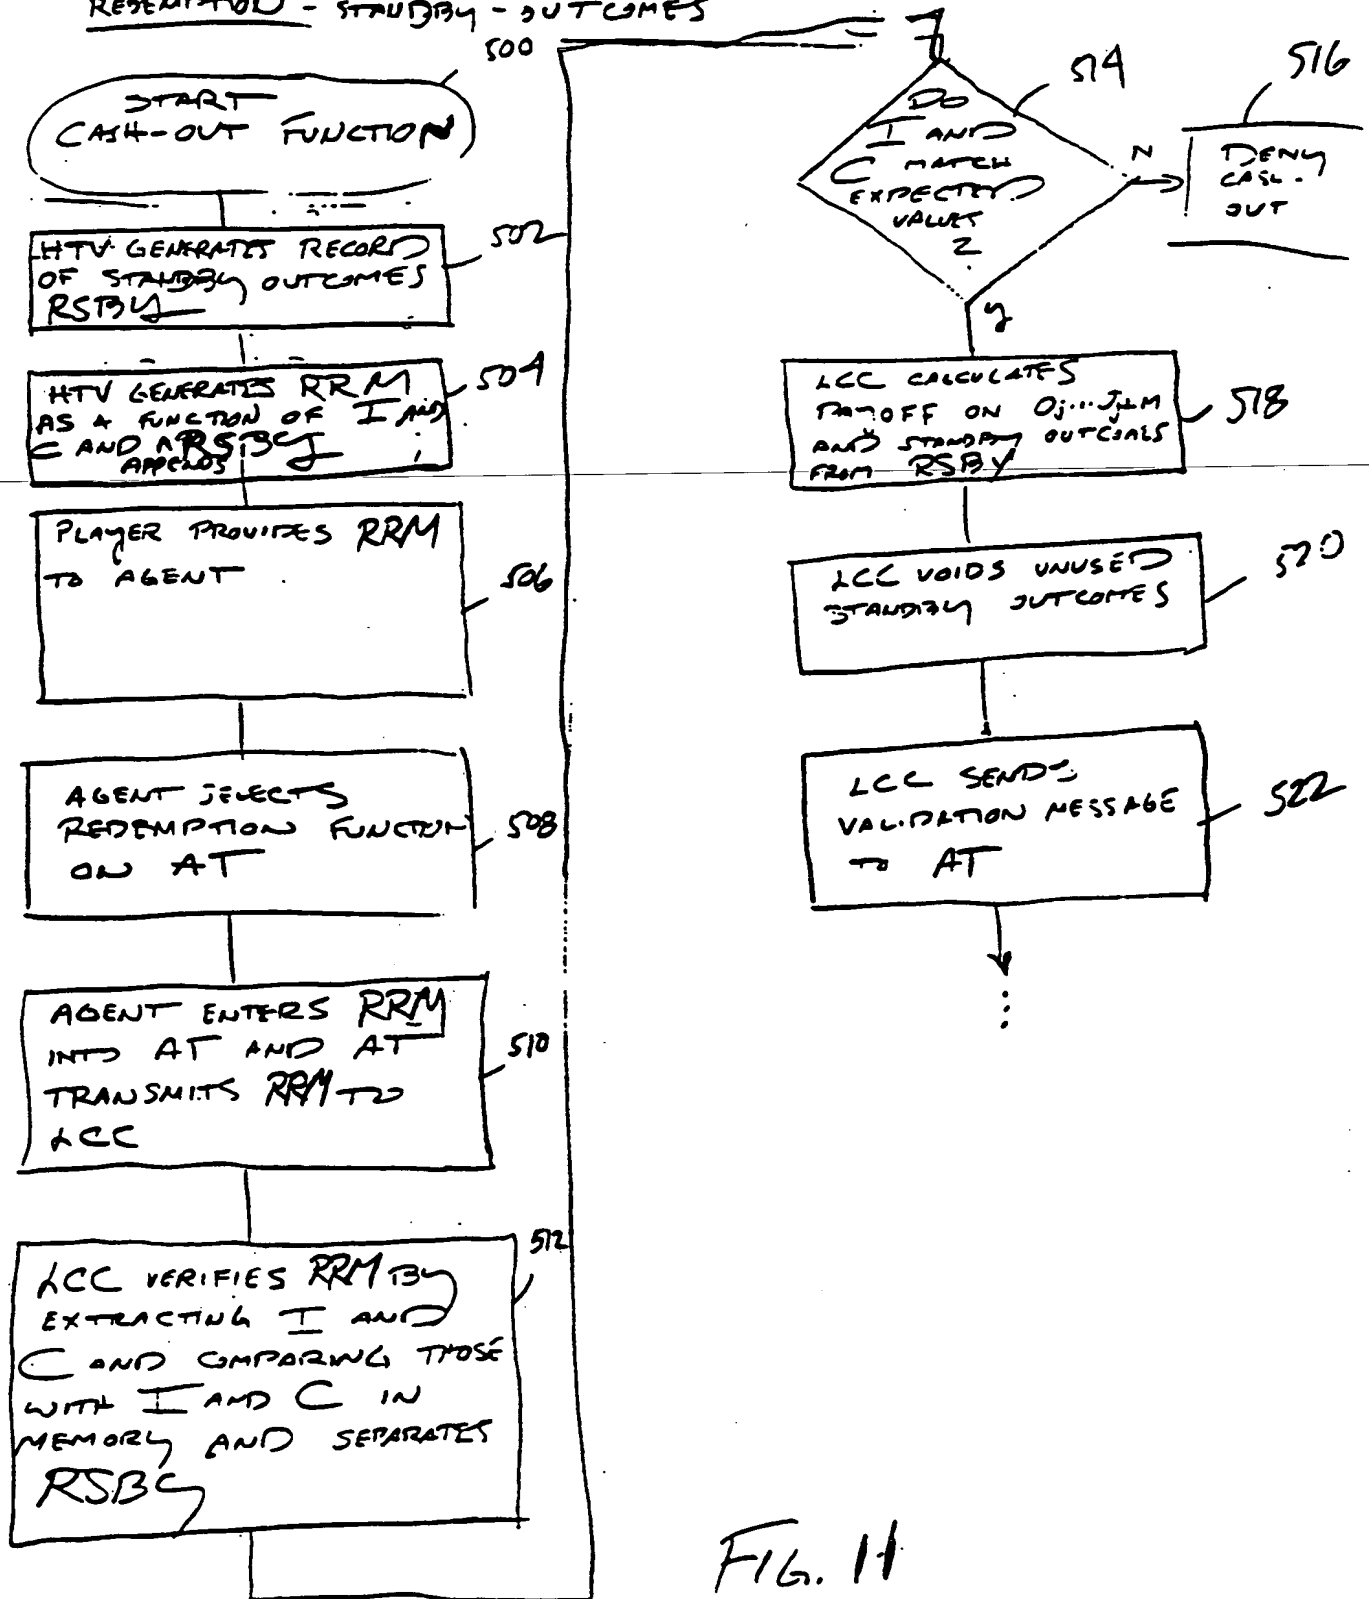 REDEMPTION - STANDBY - OUTCOMES
500
START
CASH-OUT FUNCTION
502
HTV GENERATES RECORD
OF STANDBY OUTCOMES
RSBY
504
HTV GENERATES RRM
AS A FUNCTION OF I AND
C AND APPENDS RSBY
PLAYER PROVIDES RRM
TO AGENT
506
AGENT SELECTS
REDEMPTION FUNCTION
ON AT
508
AGENT ENTERS RRM
INTO AT AND AT
TRANSMITS RRM TO
LCC
510
512
LCC VERIFIES RRM BY
EXTRACTING I AND
C AND COMPARING THOSE
WITH I AND C IN
MEMORY AND SEPARATES
RSBY
514
DO
I AND
C MATCH
EXPECTED
VALUES
?
N
Y
516
DENY
CASH-
OUT
LCC CALCULATES
PAYOFF ON
AND STANDBY OUTCOMES
FROM RSBY
518
LCC VOIDS UNUSED
STANDBY OUTCOMES
520
LCC SENDS
VALIDATION MESSAGE
TO AT
522
FIG. 11